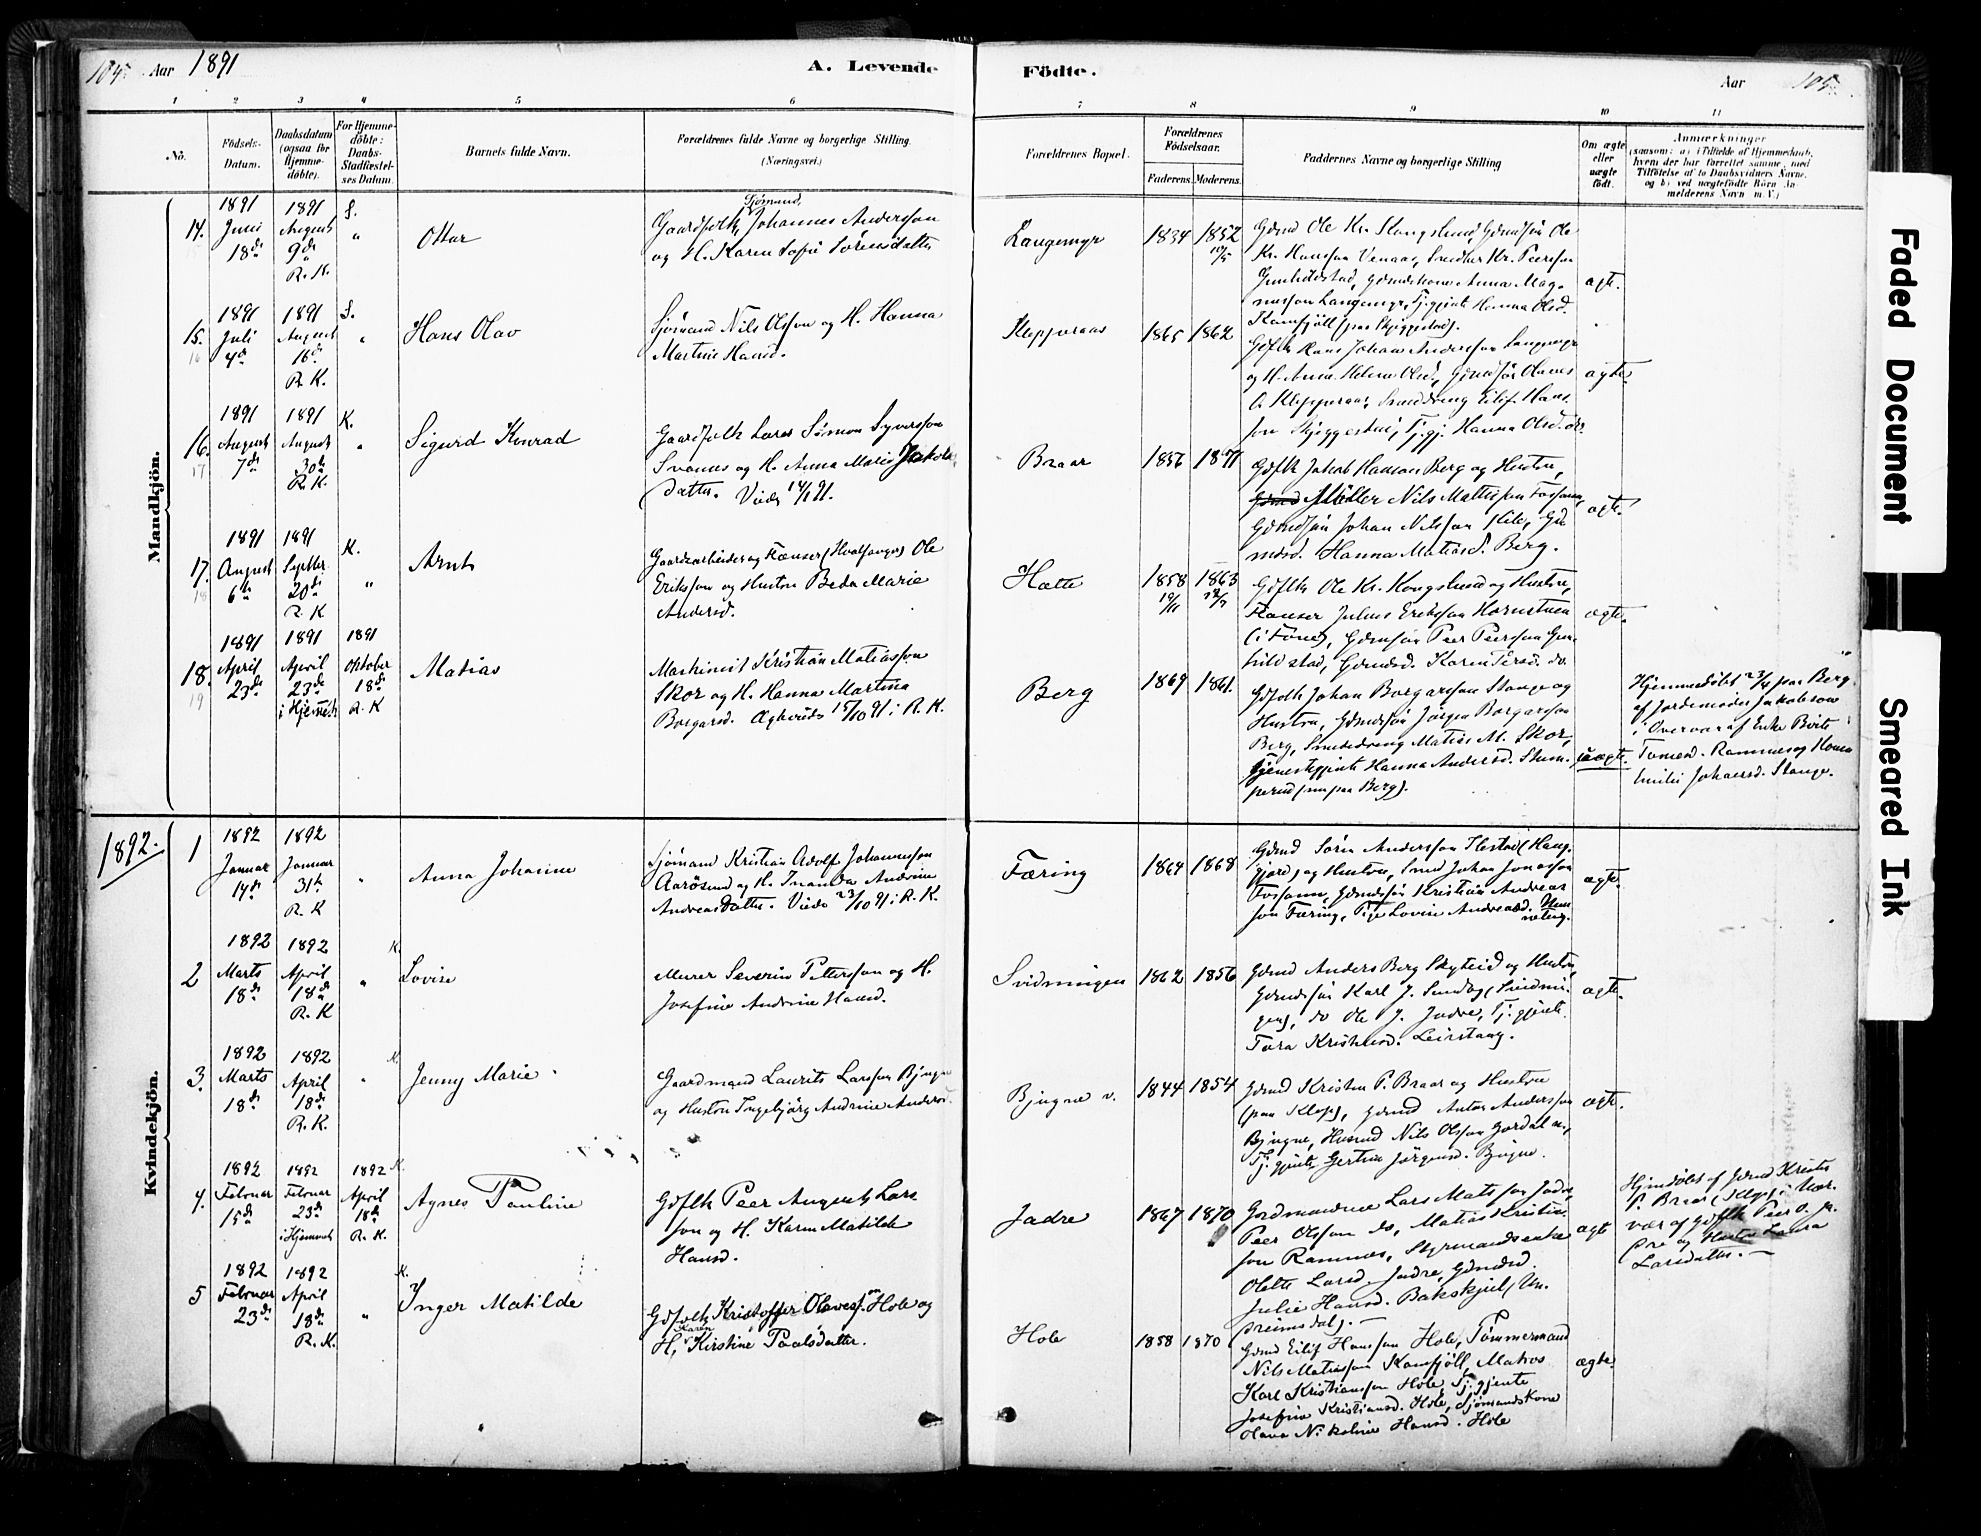 105. Aar 1891 A. Levende
Födte. Aar 105.
1 2 3 4 5 6 7 8 9 10 11
No.
Födsels-
Datum.
Daabsdatum
(ogsaa for
Hjemme-
döbte).
For Hjemme-
döbte:
Daabs-
Stadfæstel-
ses Datum.
Barnets fulde Navn.
Forældrenes fulde Navne og borgerlige Stilling.
(Næringsvei.)
Forældrenes Bopæl.
Forældrenes
Födselsaar.
Faderens. Moderens.
Faddernes Navne og borgerlige Stilling
Om ægte
eller
uægte
födt.
Anmærkninger
(saasom: a) i Tilfælde af Hjemmedaab,
hvem der har forrettet samme, med
Tilföielse af to Daabsvidners Navne,
og b) ved uægtefödte Börn An-
melderens Navn m. V.)
Mandkjön.
14. 1891 Juni 18de
1891 August 9de R. K.
S. "
Ottar
Sjömand,
Gaardfolk, Johannes Andersson
og H. Karen Sofie Sörensdatter
Langemyr
1834 1852
Gdmd Ole Kr. Stangslund, Gdmdsön Ole
Kr. Hansson Venaas, Snedker Kr. Peersson
Gunhildstad, Gdmdskone Anna Mag-
nusson Langemyr, Tj.gjente Hanna Olsd.
Kamfjöll (paa Skjeggestad).
ægte.
15. 1891 Juli 4de
1891 August 16de R. K.
S. "
Hans Olav
Sjömand Nils Olsson og H. Hanna
Martine Hansd.
Klopperaas
1865 1862
Gdflk Hans Johan Andersson Langemyr
og H. Anne Helene Olsd., Gdmdsön Olaves
O. Klopperaas, Smeddreng Eilif Hans-
son Skjeggestad, Tj.gj. Hanna Olsd. do.
ægte.
16. 1891 August 7de
1891 August 30te R. K.
K. "
Sigurd Konrad
Gaardfolk Lars Simon Syversson
Svanes og H. Anna Marie Jakobs-
datter. Viede 14/1 91.
Braar
1856 1871
Gdflk Jakob Hanson Berg og Hustru,
Gdmd Møller Nils Mattisson Fossann,
Gdmdsön Johan Nilsson Kile, Gd-
mdsd. Hanna Matiasd. Berg.
ægte.
17. 1891 August 6te
1891 Septbr 20de R. K
K. "
Arnt
Gaardsarbeider og Flænser (Hvalfanger) Ole
Eriksson og Hustru Beda Marie
Andersd.
Hatte
1858 1863
Gdflk Ole Kr. Kongslund og Hustru,
Flænser Julius Eriksson Hornstuen
(i Föne), Gdmsön Peer Peersson Gun-
hildstad, Gdmdsd. Karen Persd. do.
ægte.
18. 1891 April 23de
1891 April 23de i Hjemmet
1891 Oktober 18de R. K
Matias
Maskinist Kristian Matiasson
Skor og H. Hanna Martina
Borgarsd. Ægteviede 15/10 91 i R. K.
Berg
1869 1861.
Gdfolk Johan Borgarsson Stange og
Hustru, Gdmdsön Jörgen Borgarsson
Berg, Smededreng Matias M. Skor,
Tjenestegjente Hanna Andersd. Skum-
perud (nu paa Berg).
uægte.
Hjemmedöbt 23/4 paa Berg
af Jordemoder Jakobson
i Overvær af Enke Berte
Tomesd. Ramnes og Hanna
Emilie Johansd. Stange.
1892.
Kvindekjön.
1 1892 Januar 14de
1892 Januar 31te R. K
"
Anna Johanne
Sjömand Kristian Adolf Johannesson
Aarösund og H. Inanda Andrine
Andreasdatter. Viede 23/10 91 i R. K.
Færing
1864 1868
Gdmd Sörin Andersson Kestad (Haug-
gjord) og Hustru, Smed Johan Jonasson
Fossann, Gdmdsön Kristian Andreas-
son Færing, Pige Lovise Andreasd.
ægte.
2 1892 Marts 18de
1892 April 18de R. K
K. "
Lovise
Murer Severin Pettersson og H.
Josefine Andrine Hansd.
Svidmningen
1862 1856
Gdmd Anders Berg Skyteid og Hustru,
Gdmdsön Karl J. Sundby (Svidmin-
gen), do Ole J. Jadre, Tj.gjente
Tora Kristiansd. Leirstang.
ægte.
3. 1892 Marts 18de
1892 April 18de R. K.
K. "
Jenny Marie
Gaardmand Laurits Larsson Bjugne
og Hustru Ingebjörg Andrine Andersd.
Bjugne v.
1844 1854
Gdmd Kristen P. Braar og Hustru
(paa Klop), Gdmd Anton Andersson
Bjugne, Husmd Nils Olsson Jordal v.,
Tj.gjente Gertine Jörgensd. Bjugne.
ægte.
4. 1892 Februar 15de
1892 Februar 23de i Hjemmet
1892 April 18de R. K.
K.
Agnes Pauline
Gdflk Peer August Lars-
son og H. Karen Matilde
Hansd.
Jadre
1867 1870
Gardmændene Lars Matsson Jadre,
Peer Olsson do, Matias Kristian-
son Ramnes, Styrmandsenke
Olette Larsd. Jadre, Gdmdsd.
Julie Hansd. Bakskjul (Un-
dreimsdal).
ægte
Hjemdöbt af Gdmd Kristen
P. Braar (Klop) i Nær-
vær af Gdflk Peer O. Ja-
dre og Hustru Laura
Larsdatter.
5 1892 Februar 23de
1892 April 18de R. K.
K. "
Inger Matilde
Gdfolk Kristoffer Olavesson Hole og
H. Karen Kirstine Paalsdatter.
Hole
1858 1870
Gdmd Eilif Hansson Hole, Tömmermand
Nils Matiasson Kamfjöll, Matros
Karl Kristiansson Hole, Tj.gjente
Josefine Kristiansd. Hole, Sjömandskone
Olava Nikoline Hansd. Hole
ægte.
Faded Document
Smeared Ink